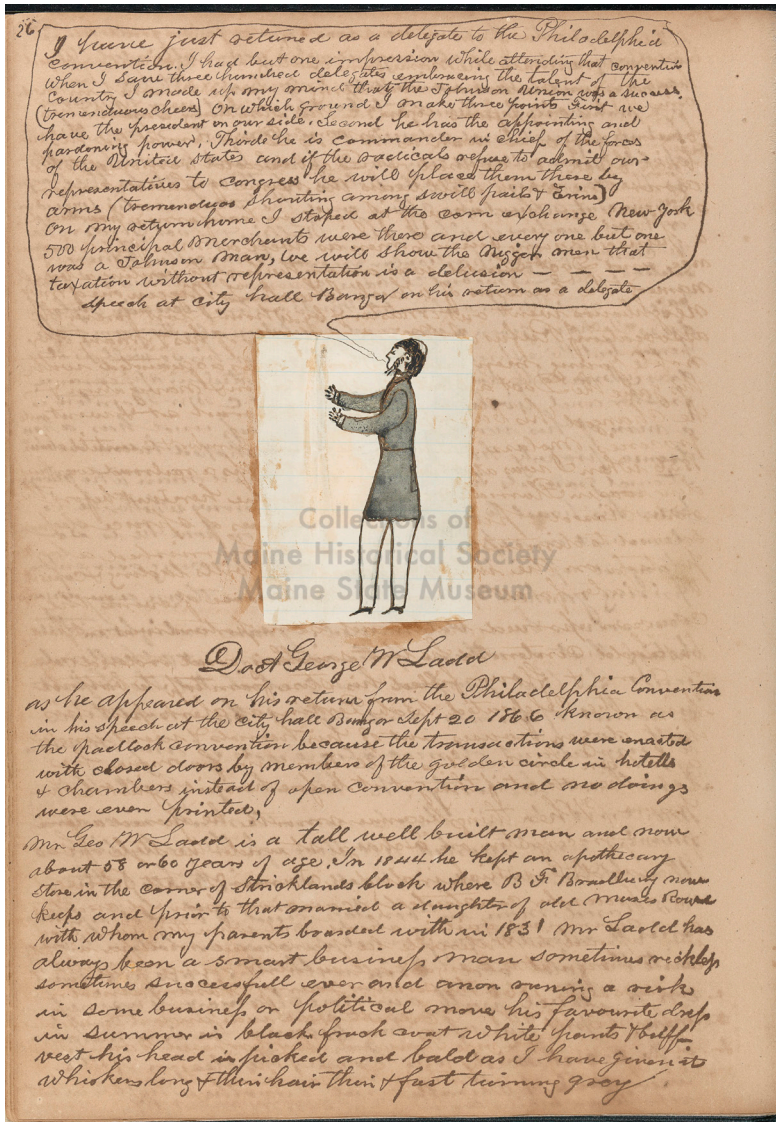 26
I have just returned as a delegate to the Philadelphia
convention. I had but one impression while attending that convention
when I saw three hundred delegates embracing the talent of the
Country I made up my mind that the Johnson Union was a success.
(tremenduous cheers) On which ground I make three points First we
have the president on our side. Second he has the appointing and
pardoning power, Thirde he is commander in chief of the forces
of the United States and if the radicals refuse to admit our
representatives to congress he will place them there by
arms (tremenduous shouting among swill pails & Erins)
On my return home I stoped at the corn exchange New York
500 principal Merchants were there and every one but one
was a Johnson Man, we will show the Nigger men that
taxation without representation is a delusion — — — —
speech at city hall Bangor on his return as a delegate
Collections of
Maine Historical Society
Maine State Museum
Doct George W Ladd
as he appeared on his return from the Philadelphia Convention
in his speech at the city hall Bangor Sept 20 1866 known as
the padlock convention because the transactions were enacted
with closed doors by members of the golden circle in hotells
& chambers instead of open convention and no doings
were ever printed,
Mr Geo W Ladd is a tall well built man and now
about 58 or 60 years of age. In 1844 he kept an apothecary
store in the corner of Stricklands block where B F Bradbury now
keeps and prior to that married a daughter of old Moses
with whom my parents boarded with in 1831 Mr Ladd has
always been a smart business man sometimes reckless
sometimes successfull ever and anon runing a risk
in some business or political move his favourite dress
in summer is black frock coat white pants & buff
vest his head is picked and bald as I have given it
whiskers long & thin hair thin & fast turning grey